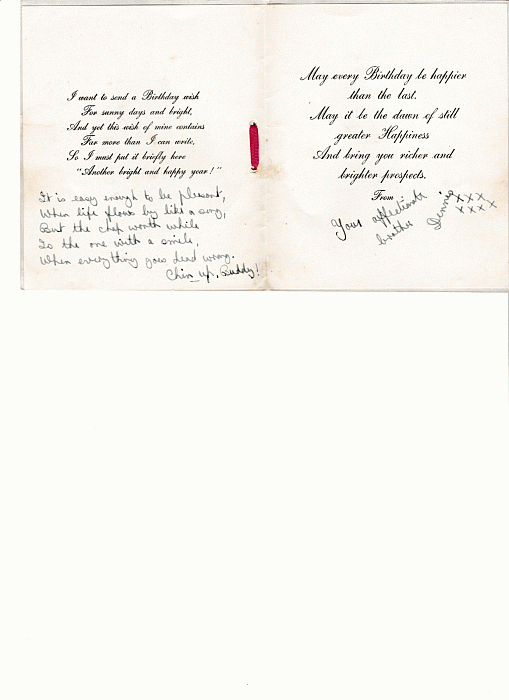 I want to send a Birthday wish
For sunny days and bright,
And yet this wish of mine contains
Far more than I can write,
So I must put it briefly here
"Another bright and happy year!"
It is easy enough to be pleasant,
When life flows by like a song,
But the chap worth while
Is the one with a smile,
When everything goes dead wrong.
Chin up, Buddy!
May every Birthday be happier
than the last.
May it be the dawn of still
greater Happiness
And bring you richer and
brighter prospects.
From
Your affectionate
brother Dennis xxx
xxxx